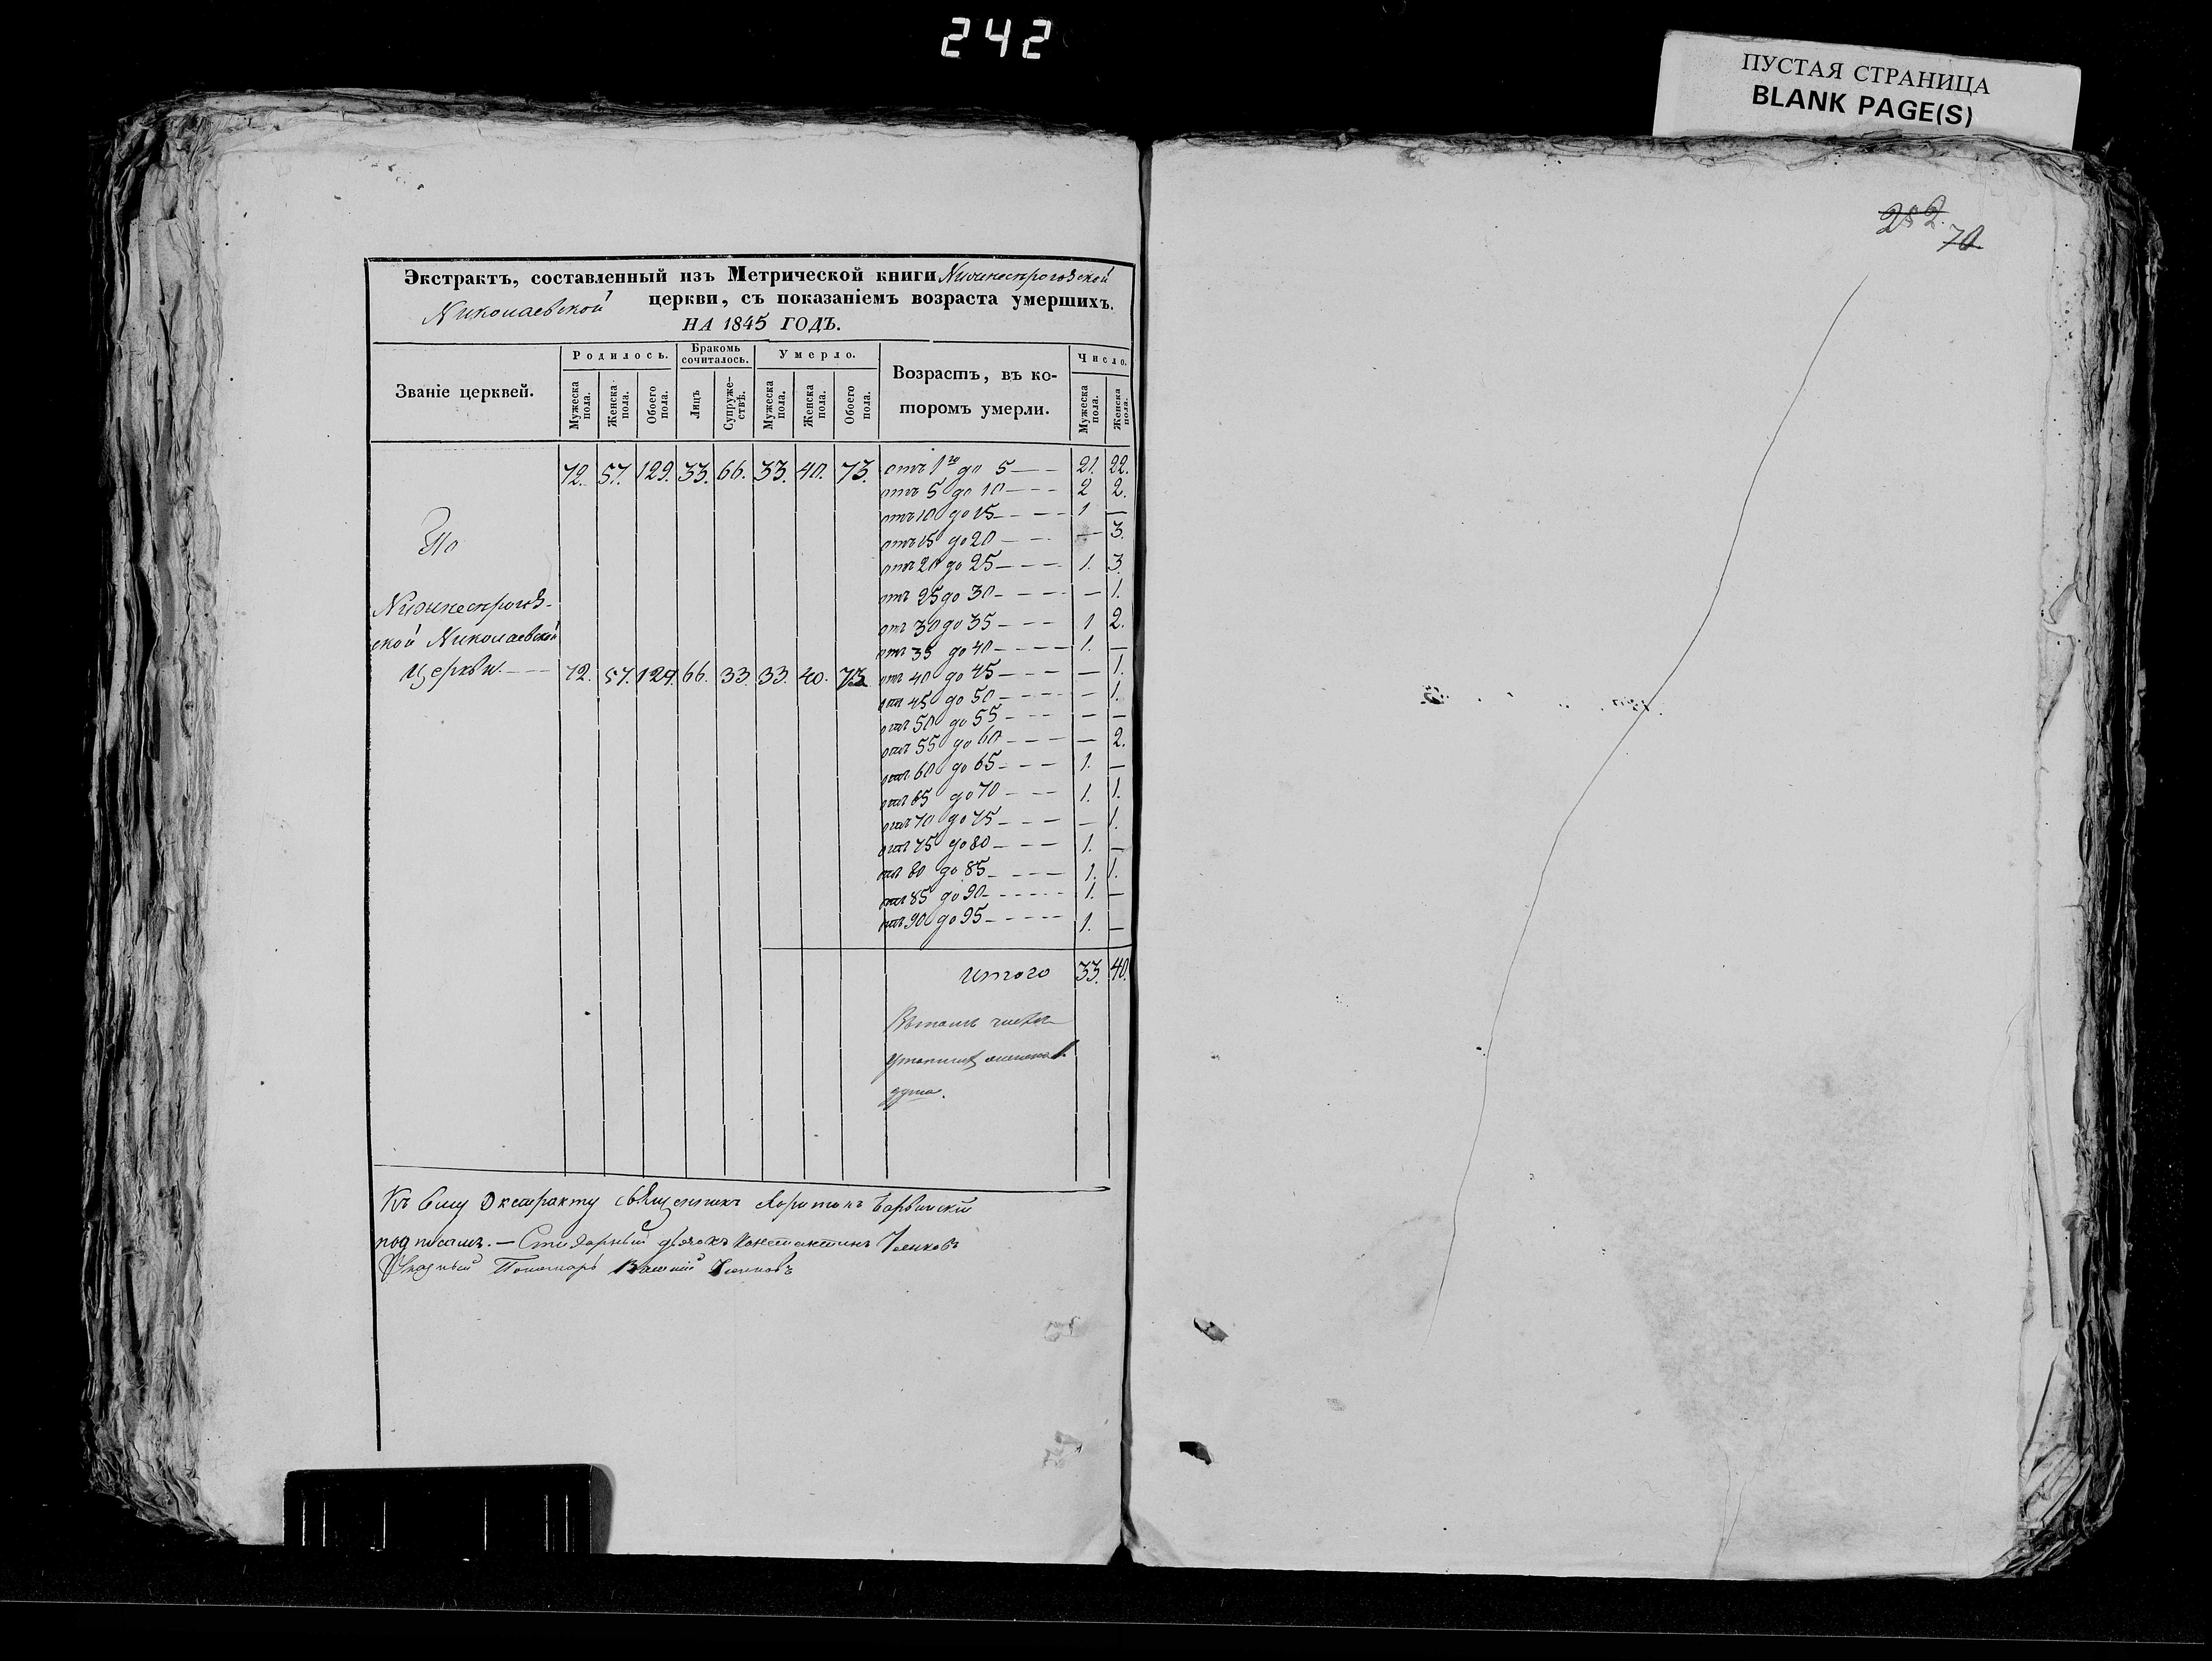 242
ПУСТАЯ СТРАНИЦА
BLANK PAGE(S)
252.
70
Экстрактъ, составленный изъ Метрической книги
Николаевской церкви, съ показаніемъ возраста умершихъ.
НА 1845 ГОДЪ.
Званіе церквей. Родилось. Бракомъ сочиталось. Умерло. Возрастъ, въ которомъ умерли. Число.
Мужеска пола. Женска пола. Обоего пола. Лицъ. Супружествъ. Мужеска пола. Женска пола. Обоего пола. Мужеска пола. Женска пола.
72. 57. 129. 33. 66. 33. 40. 73. отъ 1го до 5 — — 21. 22.
отъ 5 до 10 — — — 2 2.
отъ 10 до 15 — — — — 1 —
По
отъ 15 до 20 — — — — 3.
отъ 20 до 25 — — — — 1. 3.
отъ 25 до 30 — — — — — 1.
ской Николаевской
отъ 30 до 35 — — — 1 2.
отъ 35 до 40 — — — — 1. —
Церкви. — — 72. 57. 129. 66. 33. 33. 40. 73 отъ 40 до 45 — — — — 1.
отъ 45 до 50 — — — — — 1.
отъ 50 до 55 — — — — —
отъ 55 до 60 — — — — — 2.
отъ 60 до 65 — — — 1. —
отъ 65 до 70 — — — 1. 1.
отъ 70 до 75 — — — — 1.
отъ 75 до 80 — — — 1. —
отъ 80 до 85 — — — — 1. 1.
отъ 85 до 90 — — — — — 1. —
отъ 90 до 95 — — — — — 1. —
Итого 33. 40.
Въ томъ числѣ
1.
душа.
Къ сему Экстракту Священникъ Харитонъ
подписалъ. — Стихарный дьячокъ Константинъ
Пономарь